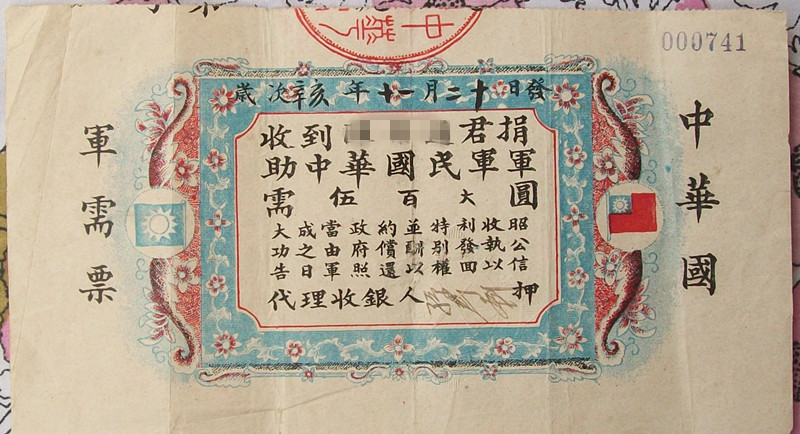 000741
中華國
軍需票
歲次辛亥年十一月二十日發
收到君捐
助中華國民軍軍
需伍百大圓
大功告
成之日
當由軍
政府照
約償還
並酬以
特別權
利發回
收執以
昭公信
代理收銀人 押